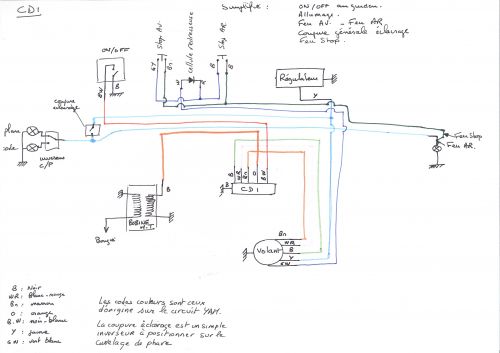 CDI
Simplifié :
ON/OFF au guidon.
Allumage.
Feu AV. - Feu AR
Coupure générale éclairage
Feu Stop.
ON/OFF
Stop AV.
cellule redresseuse
Stop AR.
GY
Bn
B
B
BW
B
Régulateur
Y
coupure
éclairage
phare
code
inverseur
C/P
Feu Stop
Feu AR.
B
BOBINE
H.T.
Bougie
B
WR
Bn
O
BW
CDI
Bn
WR
B
Y
GW
Volant
B : Noir
WR : Blanc-rouge
Bn : marron
O : orange
B.W : noir-blanc
Y : jaune
GW : vert blanc
Les codes couleurs sont ceux
d'origine sur le circuit YAM.
La coupure éclairage est un simple
inverseur à positionner sur le
cuvelage de phare